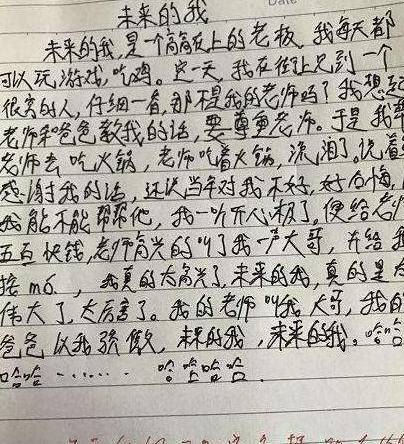 未来的我
未来的我,是一个高高在上的老板,我每天都
可以玩游戏,吃鸡。有一天,我在街上见到一个
很穷的人,仔细一看,那不是我的老师吗?我想起
老师和爸爸教我的话,要尊重老师。于是我带
老师去吃火锅,老师吃着火锅,流泪了。说着
感谢我的话,还说当年对我不好,好后悔,
我能不能帮帮他,我一听开心极了,便给老师
五百块钱,老师高兴的叫了我一声大哥,并给我
搭m6.,我真的太高兴了,未来的我,真的是太
伟大了,太厉害了。我的老师叫我大哥,我的
爸爸以我骄傲,未来的我,未来的我。哈哈
哈哈……哈哈哈哈.